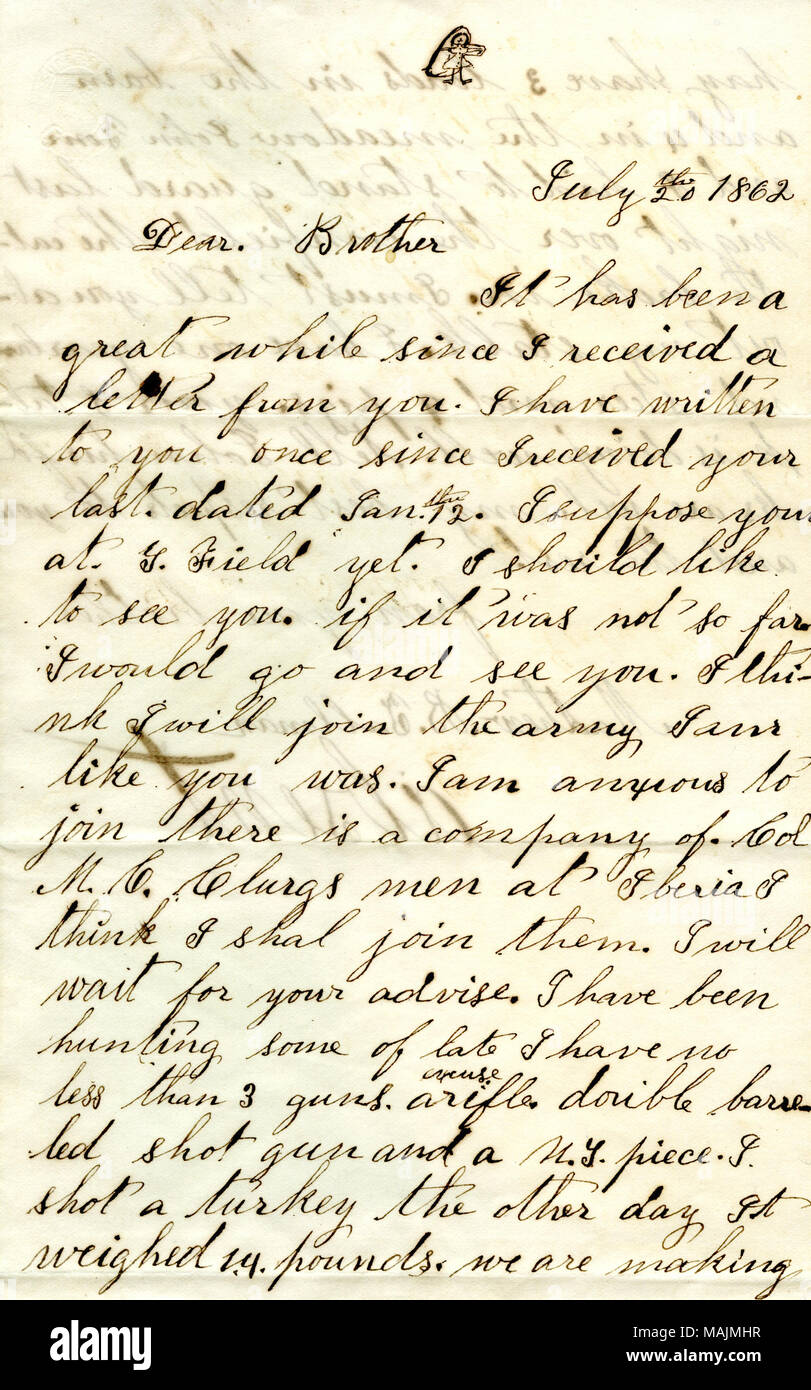 July 20th 1862
Dear. Brother
It has been a
great while since I received a
letter from you. I have written
to you once since I received your
last. dated Jan. 12th. I suppose you
at. S. Field yet. I should like
to see you. if it was not so far.
I would go and see you. I thi-
nk I will join the army I am
like you was. I am anxious to
join there is a company of. Col
M. C. Clurgs men at Iberia I
think I shal join them. I will
wait for your advise. I have been
hunting some of late I have no
less than 3 guns. a rifle. double barre-
led shot gun and a piece. I.
shot a turkey the other day It
weighed 14. pounds. we are making
alamy
Image ID: MAJMHR
www.alamy.com